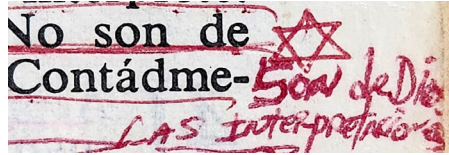 No son de
Contádme- Son de Dio
LAS INTERpretaciones